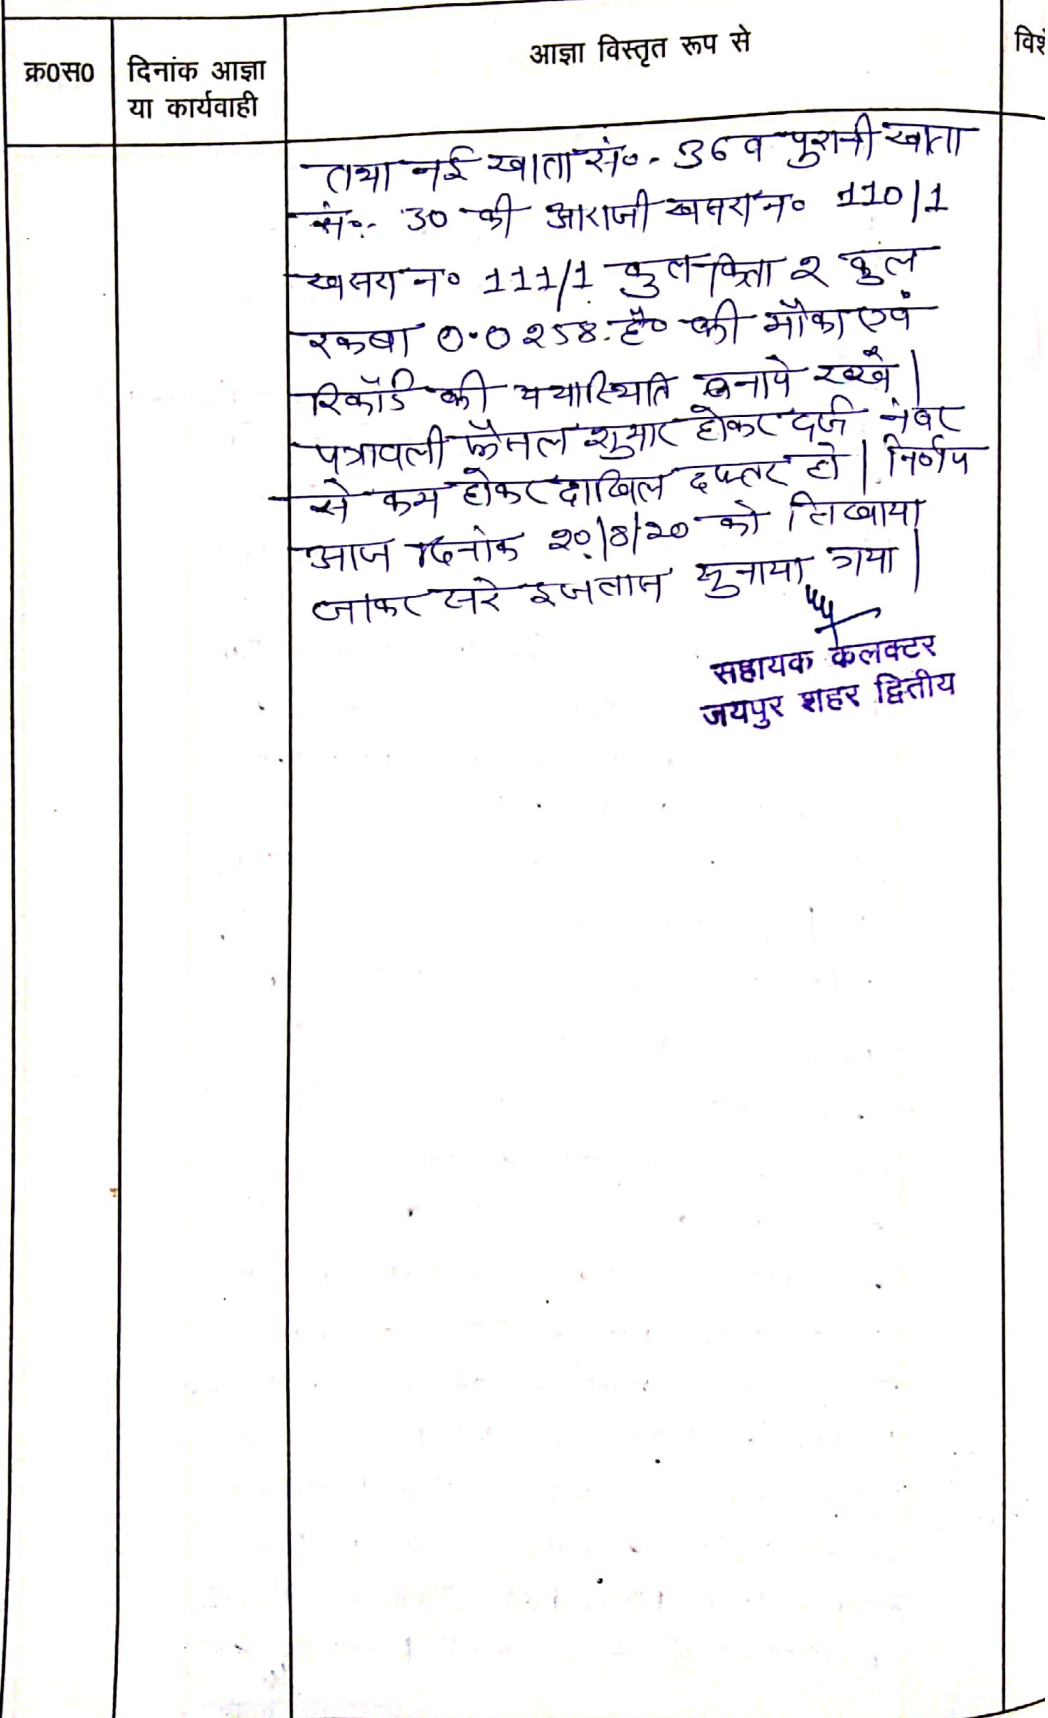 क्र०स०
दिनांक आज्ञा
या कार्यवाही
आज्ञा विस्तृत रूप से
विशे
तथा नई खाता सं०- 36 व पुरानी खाता
सं०- 30 की आराजी खसरा न० 110/1
खसरा न० 111/1 कुल किता २ कुल
रकबा 0.0258 है० की मौका एवं
रिकॉर्ड की यथास्थिति बनाये रखें।
पत्रावली फैसल शुमार होकर दर्ज नंबर
से कम होकर दाखिल दफ्तर हो। निर्णय
आज दिनांक 20/8/20 को लिखाया
जाकर सरे इजलास सुनाया गया।
सहायक कलक्टर
जयपुर शहर द्वितीय